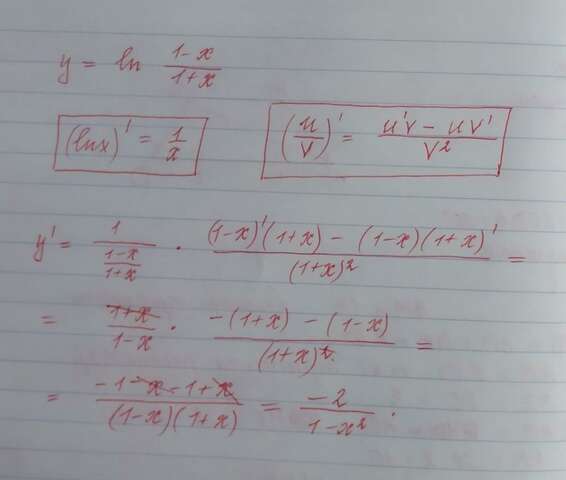 y = ln (1-x)/(1+x)
(lnx)' = 1/x (u/v)' = (u'v - uv')/v²
y' = 1/((1-x)/(1+x)) · ((1-x)'(1+x) - (1-x)(1+x)')/(1+x)² =
= (1+x)/(1-x) · (-(1+x) - (1-x))/(1+x)² =
= (-1-x-1+x)/((1-x)(1+x)) = -2/(1-x²).